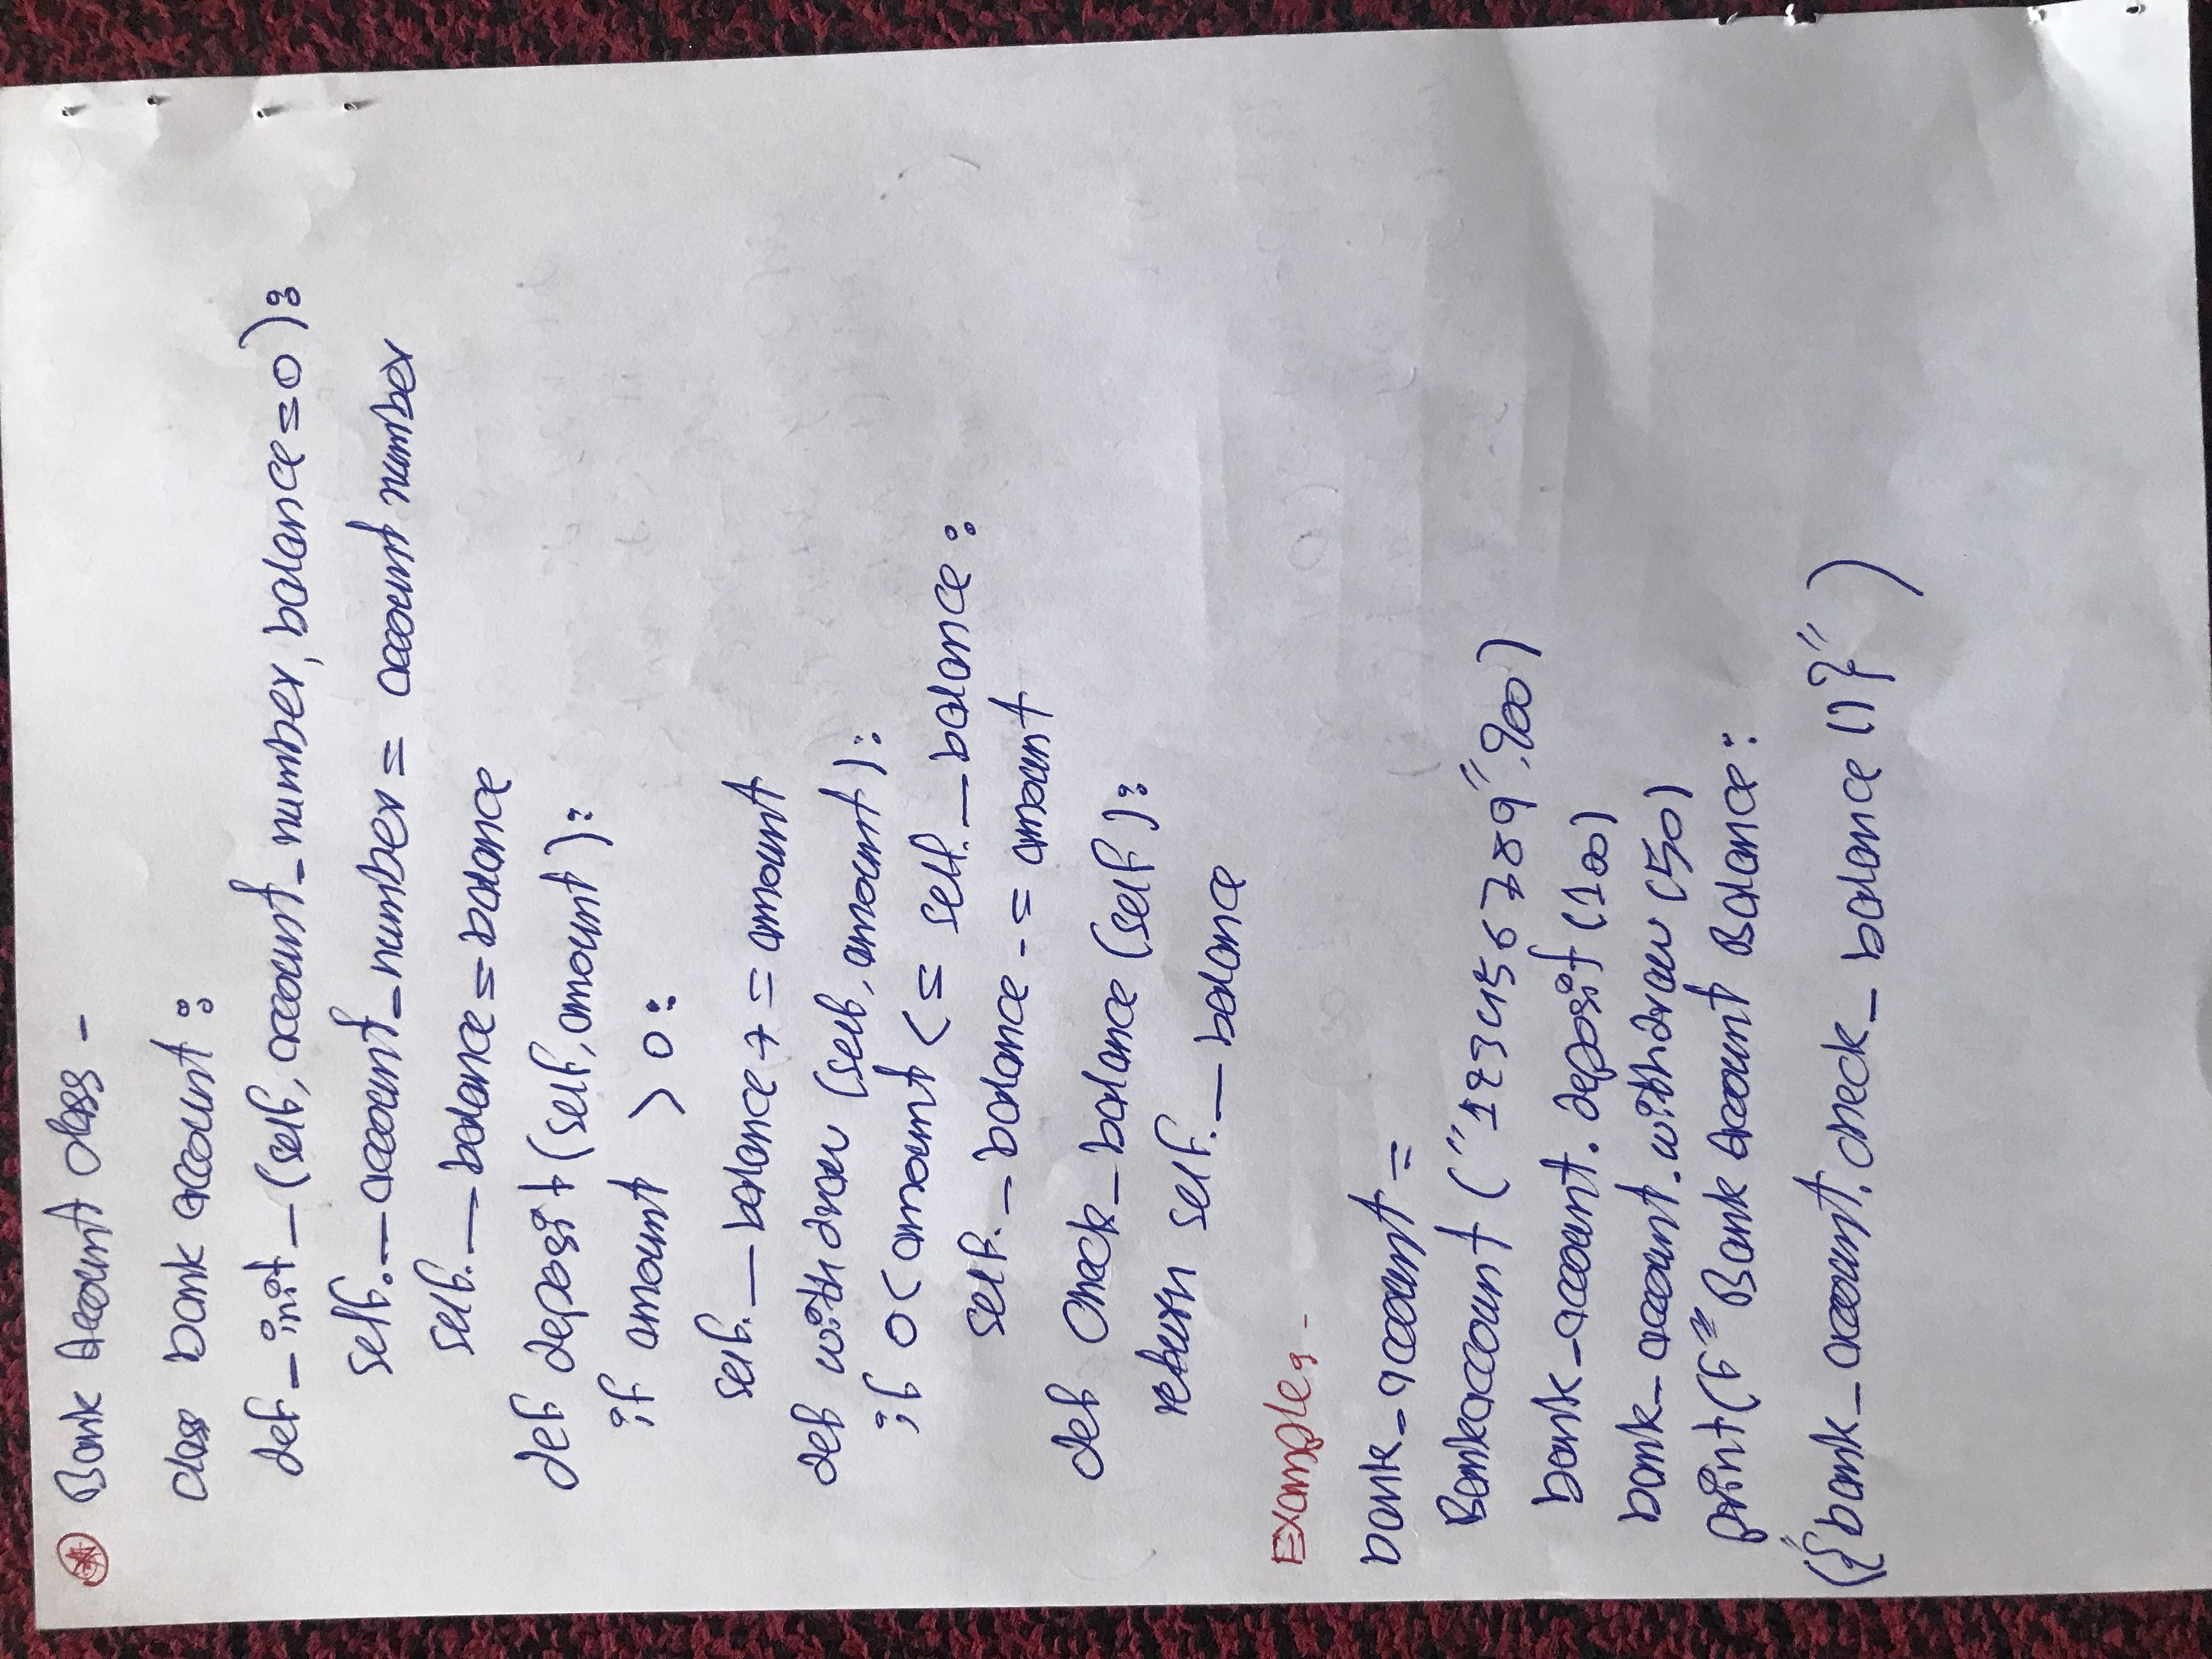 Bank Account class -
class bank account:
def _init_ (self, account_number, balance=0):
self._account_number = account number
self._balance = balance
def deposit (self, amount):
if amount > 0:
self._balance += amount
def withdraw (self, amount):
if 0 < amount <= self._balance:
self._balance -= amount
def Check_balance (self):
return self._balance
Example: -
bank_account =
Bankaccount ("123456789", 900)
bank_account.deposit (100)
bank_account.withdraw (50)
print (f" Bank Account Balance:
("{bank_account.check_balance ()}")